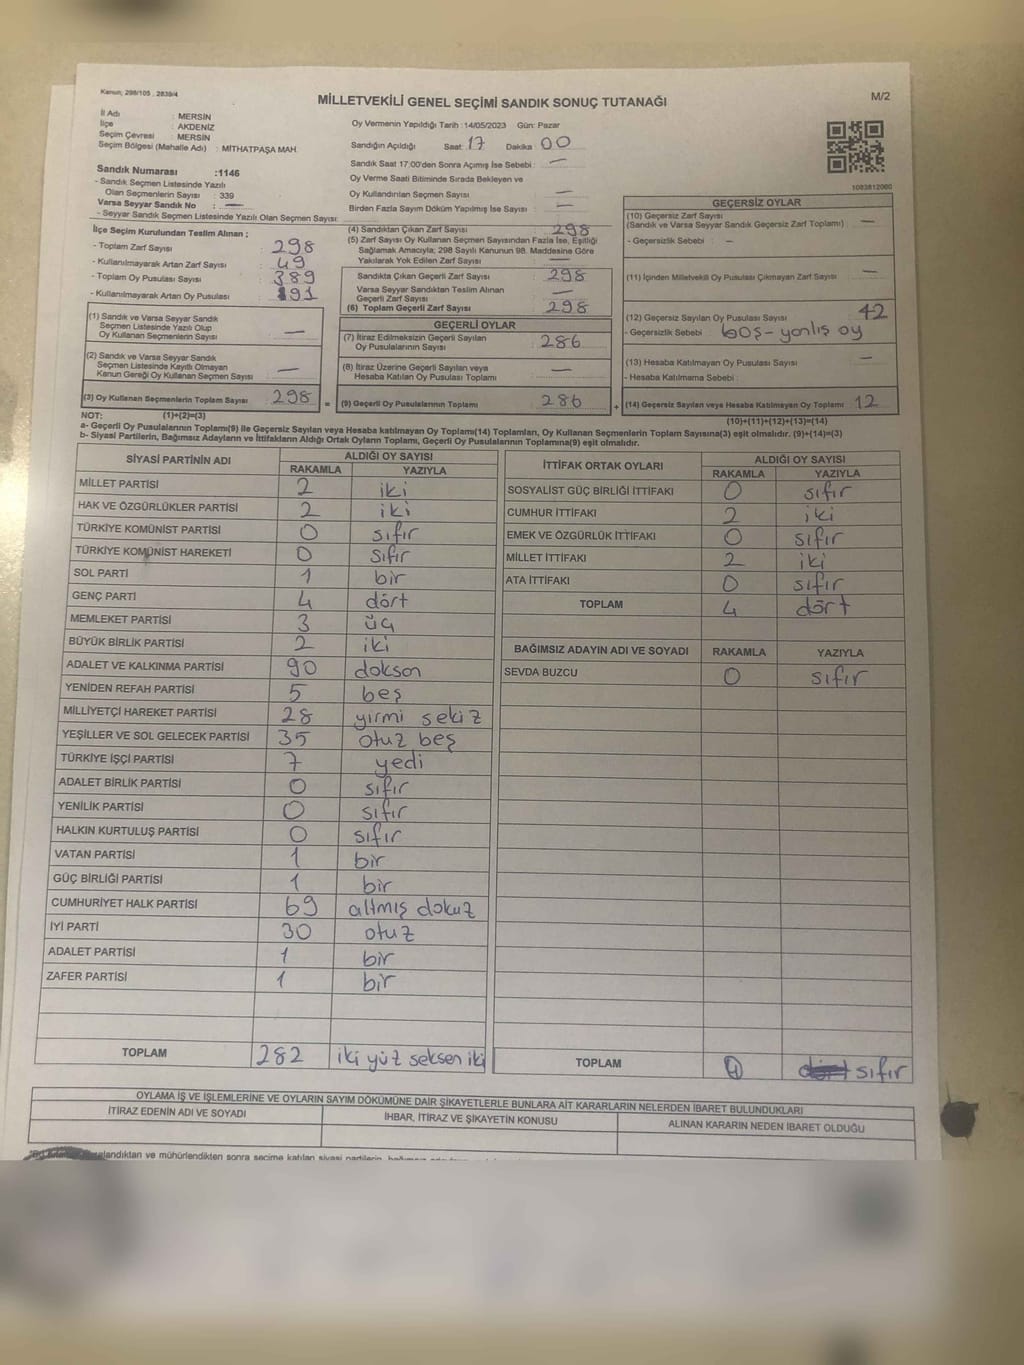 Kanun; 298/105 , 2839/4
MİLLETVEKİLİ GENEL SEÇİMİ SANDIK SONUÇ TUTANAĞI
M/2
İl Adı : MERSİN
İlçe : AKDENİZ
Seçim Çevresi : MERSİN
Seçim Bölgesi (Mahalle Adı) : MİTHATPAŞA MAH.
Sandık Numarası :1146
- Sandık Seçmen Listesinde Yazılı
Olan Seçmenlerin Sayısı : 339
Varsa Seyyar Sandık No : —
- Seyyar Sandık Seçmen Listesinde Yazılı Olan Seçmen Sayısı:
Oy Vermenin Yapıldığı Tarih :14/05/2023 Gün: Pazar
Sandığın Açıldığı Saat: 17 Dakika 00
Sandık Saat 17.00'den Sonra Açımış İse Sebebi : —
Oy Verme Saati Bitiminde Sırada Bekleyen ve
Oy Kullandırılan Seçmen Sayısı —
Birden Fazla Sayım Döküm Yapılmış İse Sayısı : —
1083812060
İlçe Seçim Kurulundan Teslim Alınan ;
- Toplam Zarf Sayısı 298
- Kullanılmayarak Artan Zarf Sayısı : 49
- Toplam Oy Pusulası Sayısı : 389
- Kullanılmayarak Artan Oy Pusulası 91
(1) Sandık ve Varsa Seyyar Sandık
Seçmen Listesinde Yazılı Olup
Oy Kullanan Seçmenlerin Sayısı —
(2) Sandık ve Varsa Seyyar Sandık
Seçmen Listesinde Kayıtlı Olmayan
Kanun Gereği Oy Kullanan Seçmen Sayısı —
(3) Oy Kullanan Seçmenlerin Toplam Sayısı 298 =
(4) Sandıktan Çıkan Zarf Sayısı 298
(5) Zarf Sayısı Oy Kullanan Seçmen Sayısından Fazla İse, Eşitliği
Sağlamak Amacıyla; 298 Sayılı Kanunun 98. Maddesine Göre
Yakılarak Yok Edilen Zarf Sayısı —
Sandıkta Çıkan Geçerli Zarf Sayısı 298
Varsa Seyyar Sandıktan Teslim Alınan
Geçerli Zarf Sayısı —
(6) Toplam Geçerli Zarf Sayısı 298
GEÇERLİ OYLAR
(7) İtiraz Edilmeksizin Geçerli Sayılan
Oy Pusulalarının Sayısı 286
(8) İtiraz Üzerine Geçerli Sayılan veya
Hesaba Katılan Oy Pusulası Toplamı —
(9) Geçerli Oy Pusulalarının Toplamı 286 +
GEÇERSİZ OYLAR
(10) Geçersiz Zarf Sayısı
(Sandık ve Varsa Seyyar Sandık Geçersiz Zarf Toplamı) —
- Geçersizlik Sebebi : —
(11) İçinden Milletvekili Oy Pusulası Çıkmayan Zarf Sayısı —
(12) Geçersiz Sayılan Oy Pusulası Sayısı 12
- Geçersizlik Sebebi : boş-yanlış oy
(13) Hesaba Katılmayan Oy Pusulası Sayısı —
- Hesaba Katılmama Sebebi :
(14) Geçersiz Sayılan veya Hesaba Katılmayan Oy Toplamı 12
NOT: (1)+(2)=(3)
(10)+(11)+(12)+(13)=(14)
a- Geçerli Oy Pusulalarının Toplamı(9) ile Geçersiz Sayılan veya Hesaba Katılmayan Oy Toplamı(14) Toplamları, Oy Kullanan Seçmenlerin Toplam Sayısına(3) eşit olmalıdır. (9)+(14)=(3)
b- Siyasi Partilerin, Bağımsız Adayların ve İttifakların Aldığı Ortak Oyların Toplamı, Geçerli Oy Pusulalarının Toplamına(9) eşit olmalıdır.
SİYASİ PARTİNİN ADI ALDIĞI OY SAYISI
RAKAMLA YAZIYLA
MİLLET PARTİSİ 2 iki
HAK VE ÖZGÜRLÜKLER PARTİSİ 2 iki
TÜRKİYE KOMÜNİST PARTİSİ 0 sıfır
TÜRKİYE KOMÜNİST HAREKETİ 0 sıfır
SOL PARTİ 1 bir
GENÇ PARTİ 4 dört
MEMLEKET PARTİSİ 3 üç
BÜYÜK BİRLİK PARTİSİ 2 iki
ADALET VE KALKINMA PARTİSİ 90 doksan
YENİDEN REFAH PARTİSİ 5 beş
MİLLİYETÇİ HAREKET PARTİSİ 28 yirmi sekiz
YEŞİLLER VE SOL GELECEK PARTİSİ 35 otuz beş
TÜRKİYE İŞÇİ PARTİSİ 7 yedi
ADALET BİRLİK PARTİSİ 0 sıfır
YENİLİK PARTİSİ 0 sıfır
HALKIN KURTULUŞ PARTİSİ 0 sıfır
VATAN PARTİSİ 1 bir
GÜÇ BİRLİĞİ PARTİSİ 1 bir
CUMHURİYET HALK PARTİSİ 69 altmış dokuz
İYİ PARTİ 30 otuz
ADALET PARTİSİ 1 bir
ZAFER PARTİSİ 1 bir
TOPLAM 282 iki yüz seksen iki
İTTİFAK ORTAK OYLARI ALDIĞI OY SAYISI
RAKAMLA YAZIYLA
SOSYALİST GÜÇ BİRLİĞİ İTTİFAKI 0 sıfır
CUMHUR İTTİFAKI 2 iki
EMEK VE ÖZGÜRLÜK İTTİFAKI 0 sıfır
MİLLET İTTİFAKI 2 iki
ATA İTTİFAKI 0 sıfır
TOPLAM 4 dört
BAĞIMSIZ ADAYIN ADI VE SOYADI RAKAMLA YAZIYLA
SEVDA BUZCU 0 sıfır
TOPLAM sıfır
OYLAMA İŞ VE İŞLEMLERİNE VE OYLARIN SAYIM DÖKÜMÜNE DAİR ŞİKAYETLERLE BUNLARA AİT KARARLARIN NELERDEN İBARET BULUNDUKLARI
İTİRAZ EDENİN ADI VE SOYADI İHBAR, İTİRAZ VE ŞİKAYETİN KONUSU ALINAN KARARIN NEDEN İBARET OLDUĞU
ve mühürlendikten sonra seçime katılan siyasi partilerin,